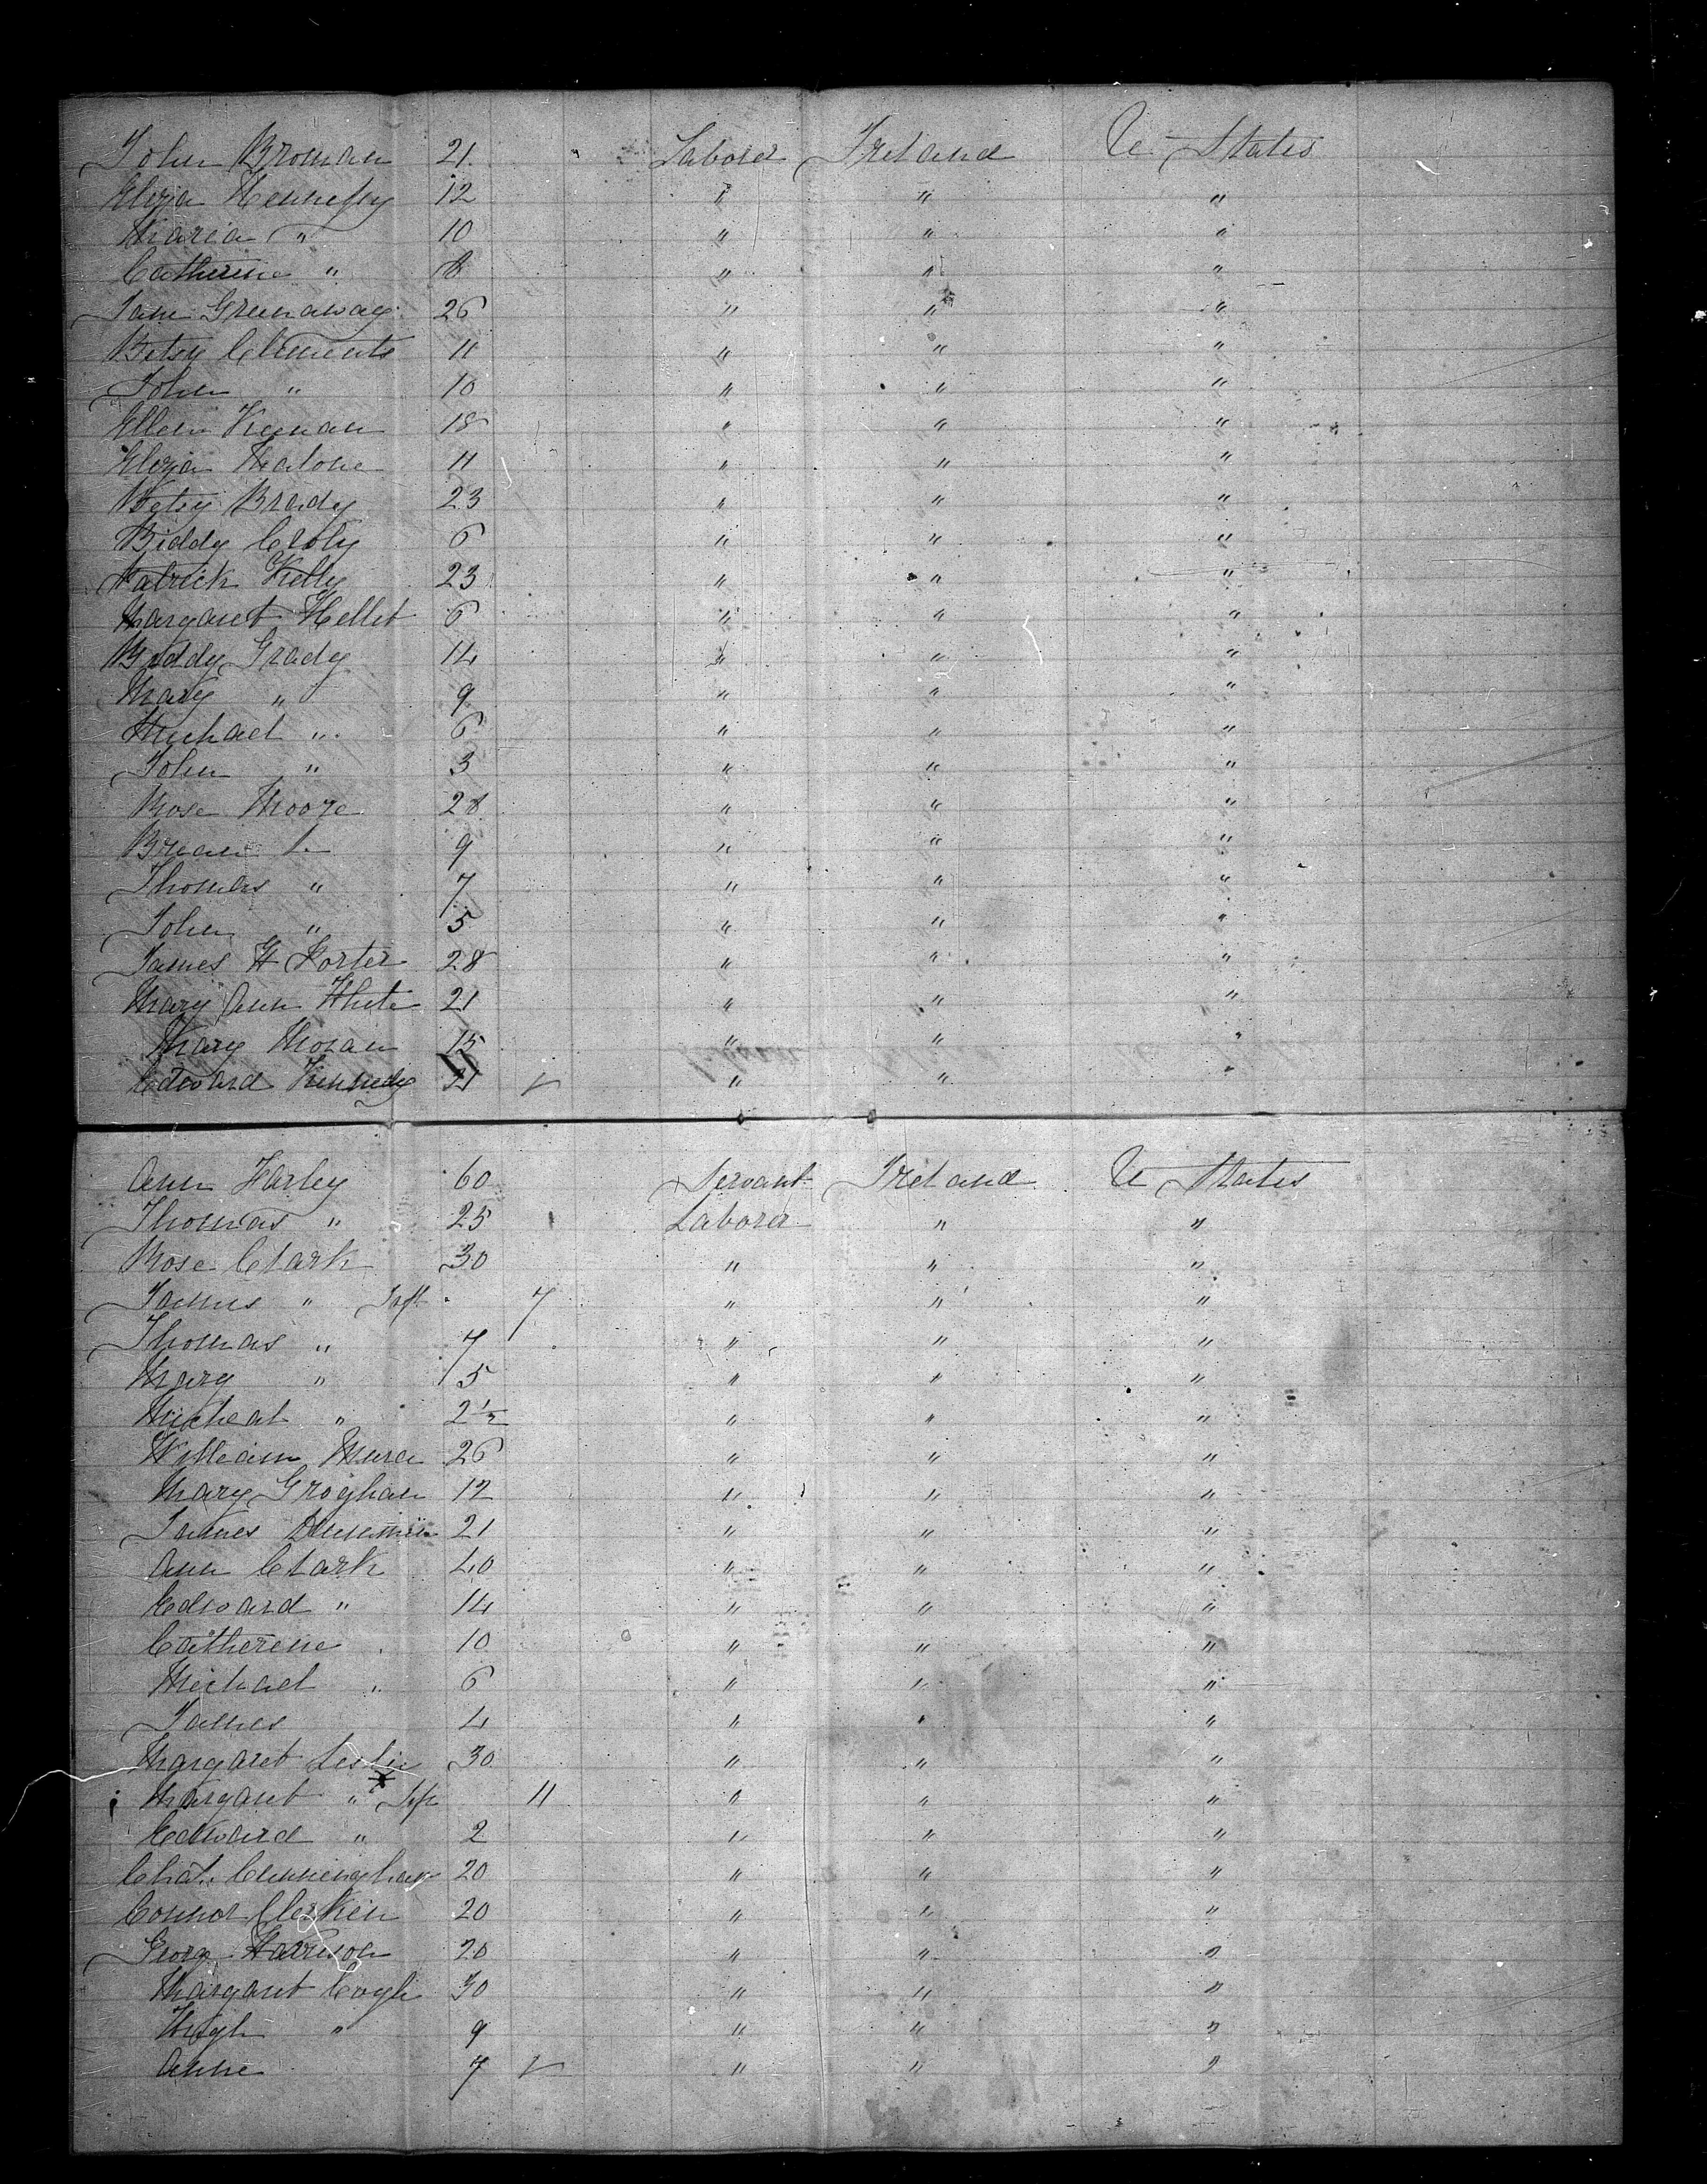 John Broman 21 Laborer Ireland U States
Eliza Hennessy 12 " " "
Maria " 10 " " "
Catherine " 8 " " "
Jane Greenaway 26 " " "
Betsy Clements 11 " " "
John " 10 " " "
Ellen Keenan 18 " " "
Eliza Malone 11 " " "
Betsy Brady 23 " " "
Biddy Croly 6 " " "
Patrick Kelly 23 " " "
Margaret Hellet 6 " " "
Biddy Grady 14 " " "
Mary " 9 " " "
Michael " 6 " " "
John " 3 " " "
Rose Moore 28 " " "
Brean " 9 " " "
Thomas " 7 " " "
John " 5 " " "
James H Porter 28 " " "
Mary Ann White 21 " " "
Mary Moran 15 " " "
Edward Kennedy 21 " " "
Ann Farley 60 Servant Ireland U States
Thomas " 25 Laborer " "
Rose Clark 30 " " "
James " Inft 7 " " "
Thomas " 7 " " "
Mary " 5 " " "
Micheal " 2½ " " "
William 26 " " "
Mary Groghan 12 " " "
James 21 " " "
Ann Clark 40 " " "
Edward " 14 " " "
Catherine " 10 " " "
Michael " 6 " " "
James 4 " " "
Margaret Leslie 30 " " "
Margaret " Inft 11 " " "
Edward " 2 " " "
Chas. Cunningham 20 " " "
Connor Clerkin 20 " " "
George Harrison 20 " " "
Margaret Cogh 30 " " "
Hugh " 9 " " "
Anne 7 " " "